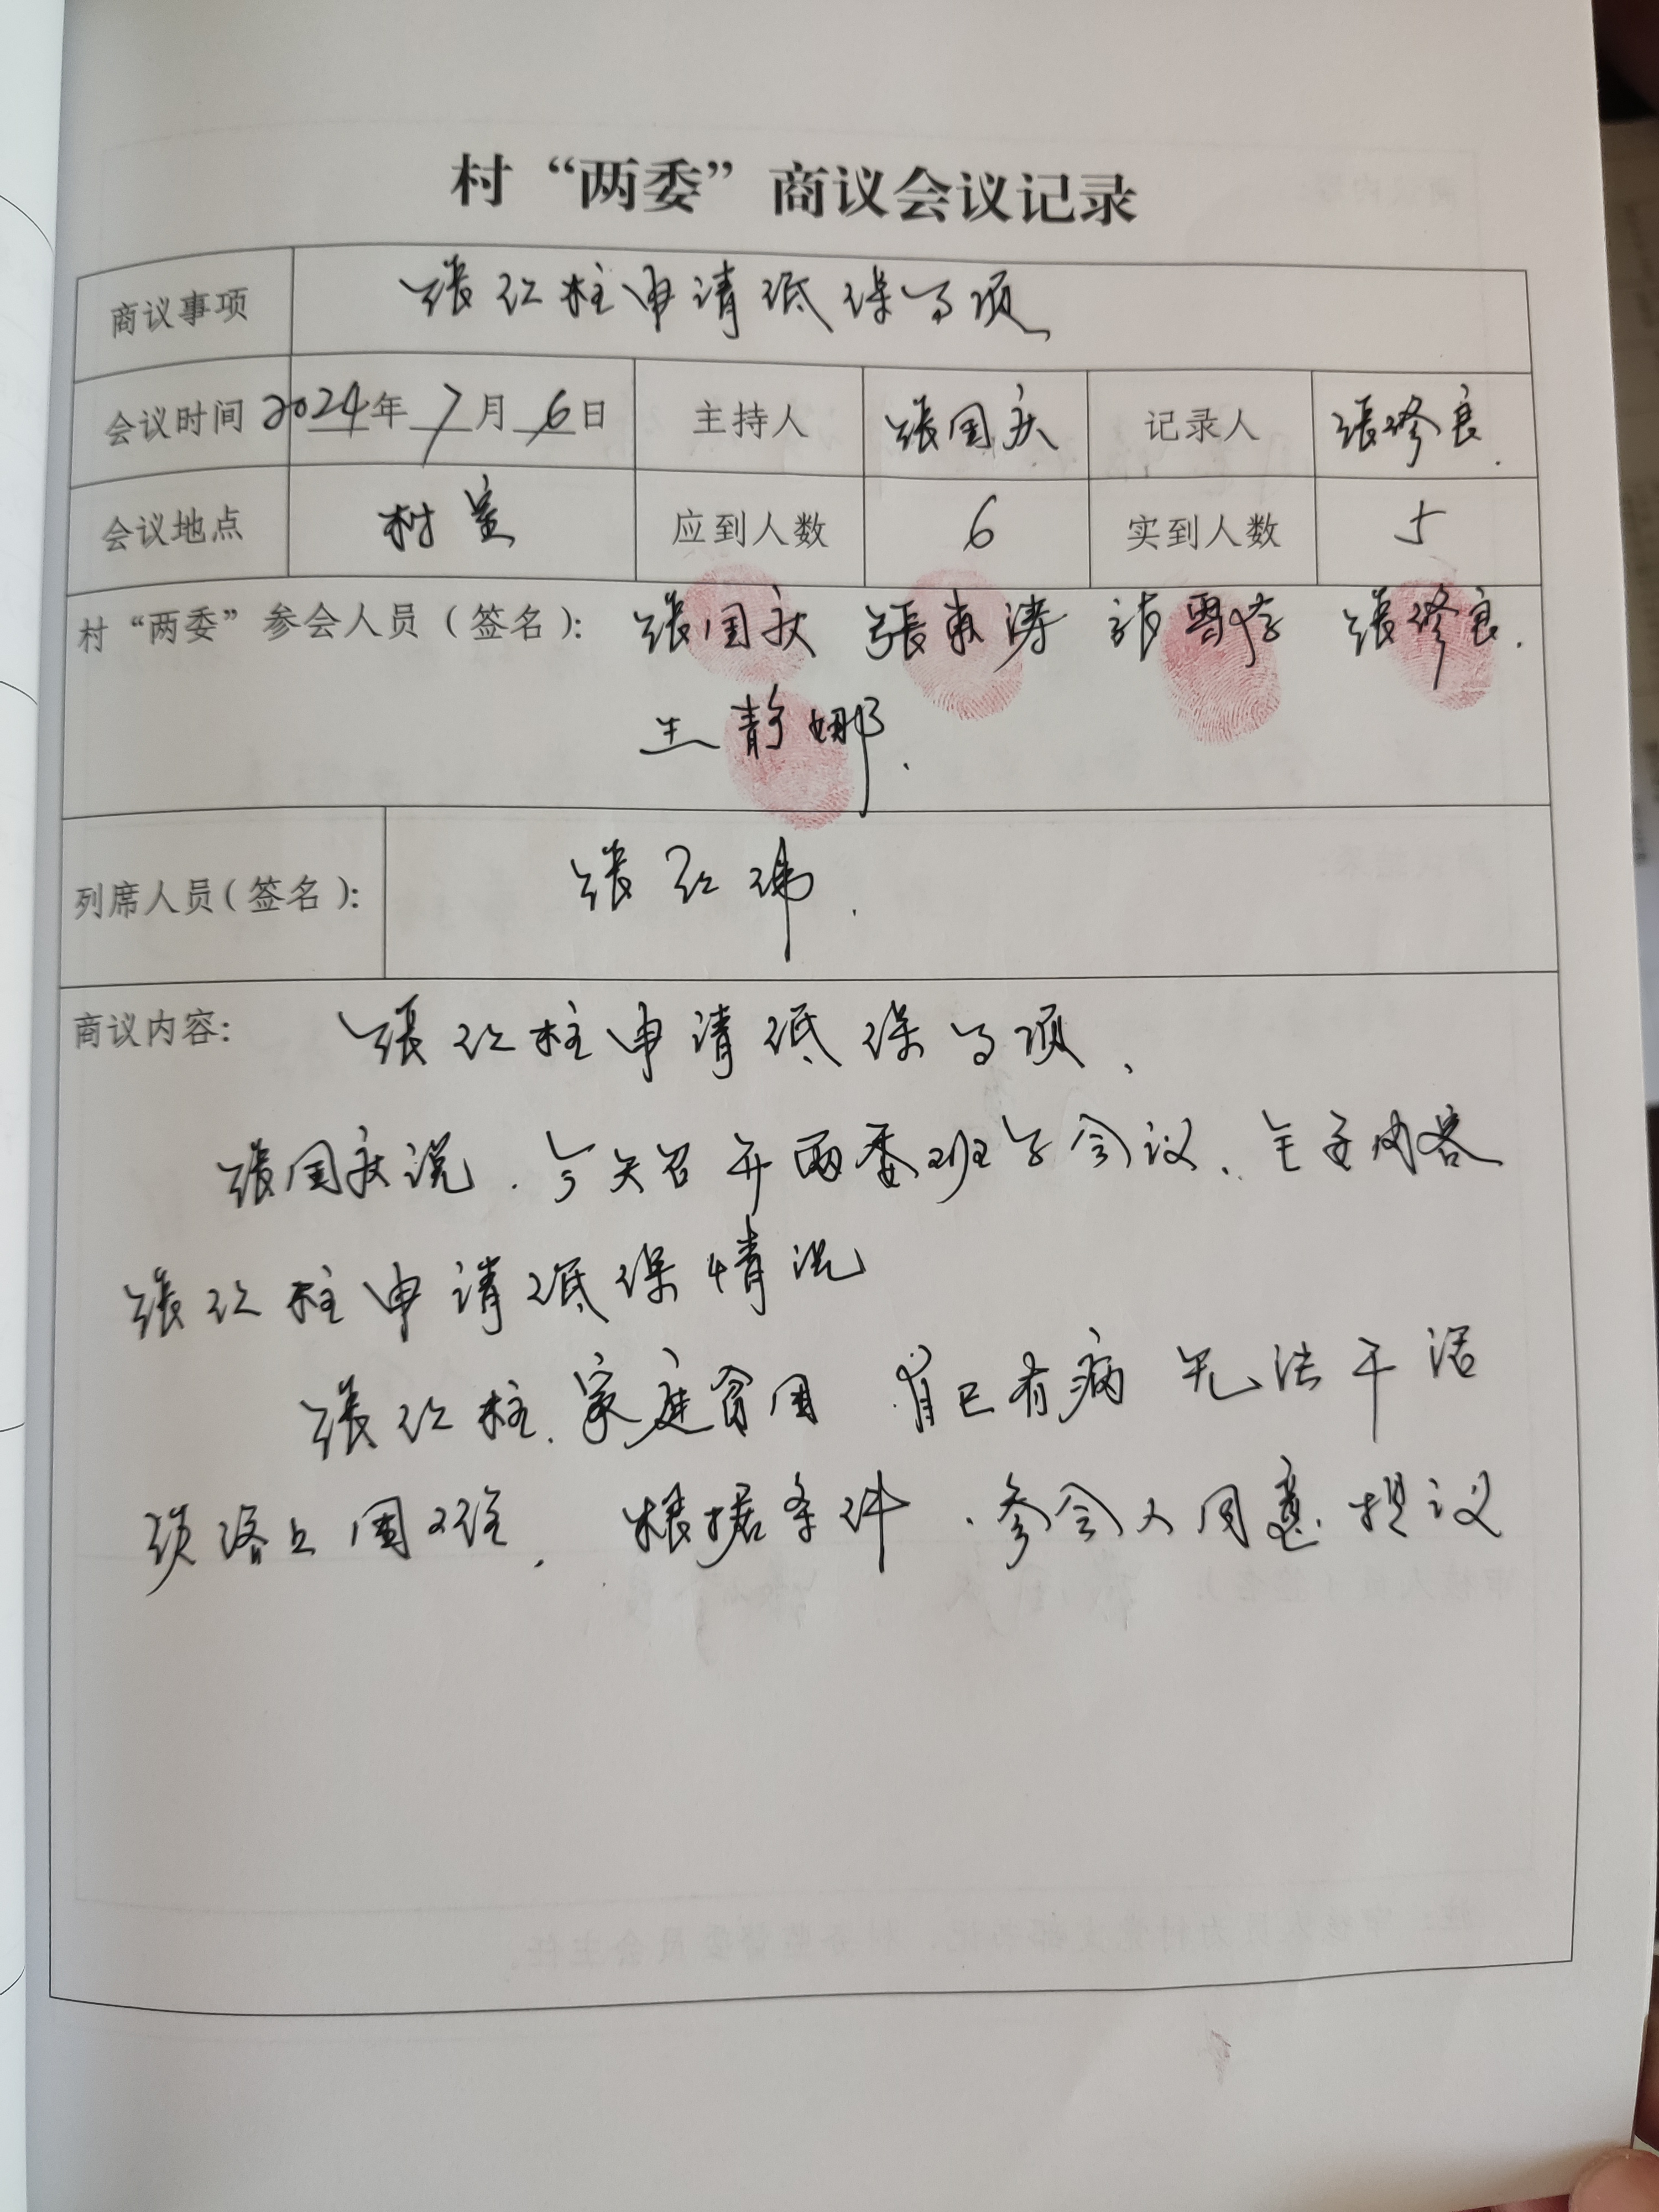 村“两委”商议会议记录
商议事项 张红柱申请低保事项
会议时间 2024年7月6日 主持人 张国庆 记录人 张修良.
会议地点 村室 应到人数 6 实到人数 5
村“两委”参会人员(签名): 张国庆 張東涛 张修良.
王静娜.
列席人员(签名): 张红伟.
商议内容: 张红柱申请低保事项、
张国庆说.今天召开两委班子会议、主要内容
张红柱申请低保情况
张红柱.家庭贫困 自己有病 无法干活
困难. 根据条件.参会人同意.提议